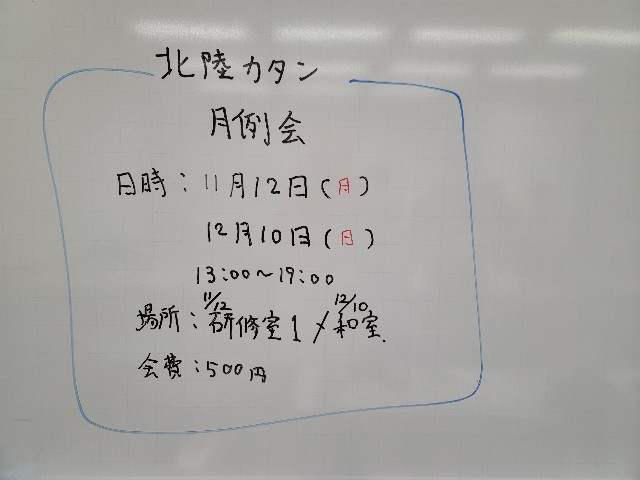 北陸カタン
月例会
日時：11月12日(月)
12月10日(日)
13:00～19:00
11/12 12/10
場所：研修室1/和室.
会費：500円